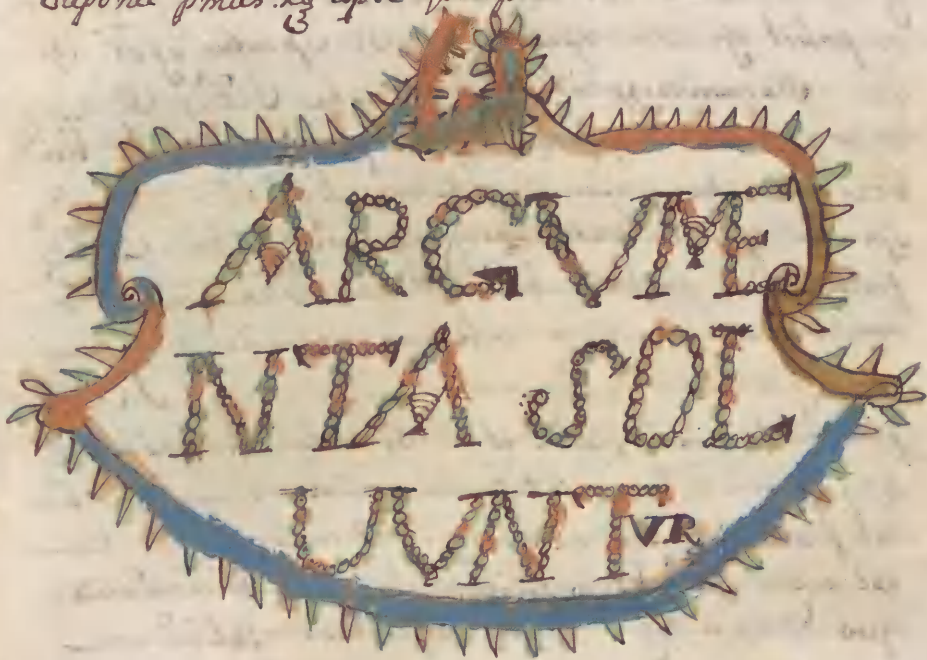 ARGVME
NTA SOL
UVNTVR